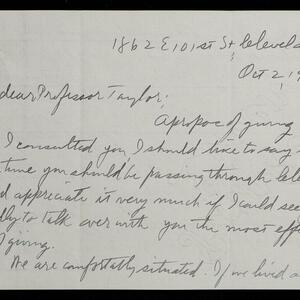 1862 E 101st St Clevela
Oct 2, 19
dear Professor Taylor;
Apropos of giving
I consulted you, I should like to say
time you should be passing through Cle
d appreciate it very much if I could see
lly to talk over with you the most eff
giving.
We are comfortably situated. If we lived a